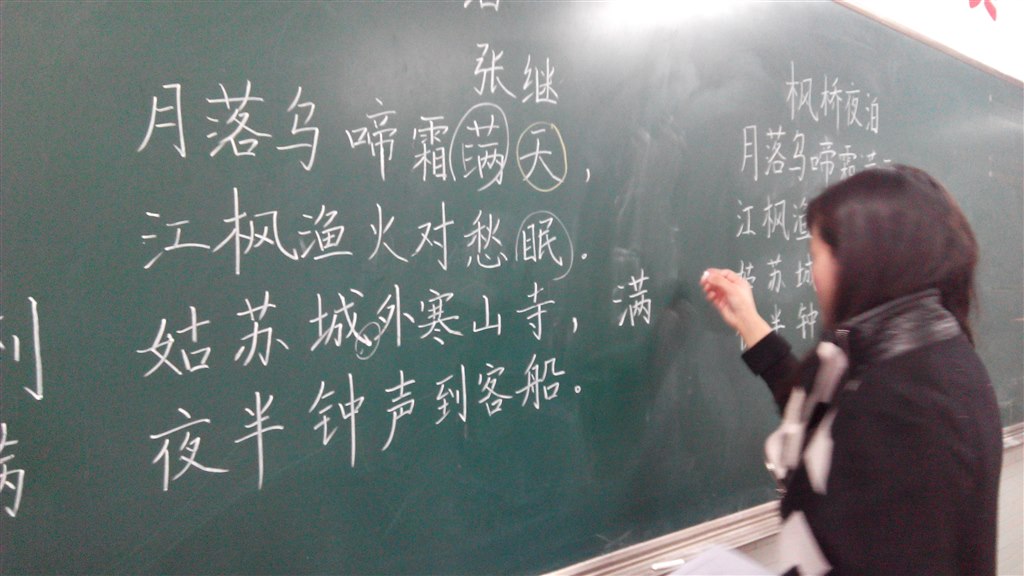 张继
月落乌啼霜满天,
江枫渔火对愁眠.
姑苏城外寒山寺,
夜半钟声到客船.
满
枫桥夜泊
月落乌啼霜满
江枫渔
姑苏城
半钟